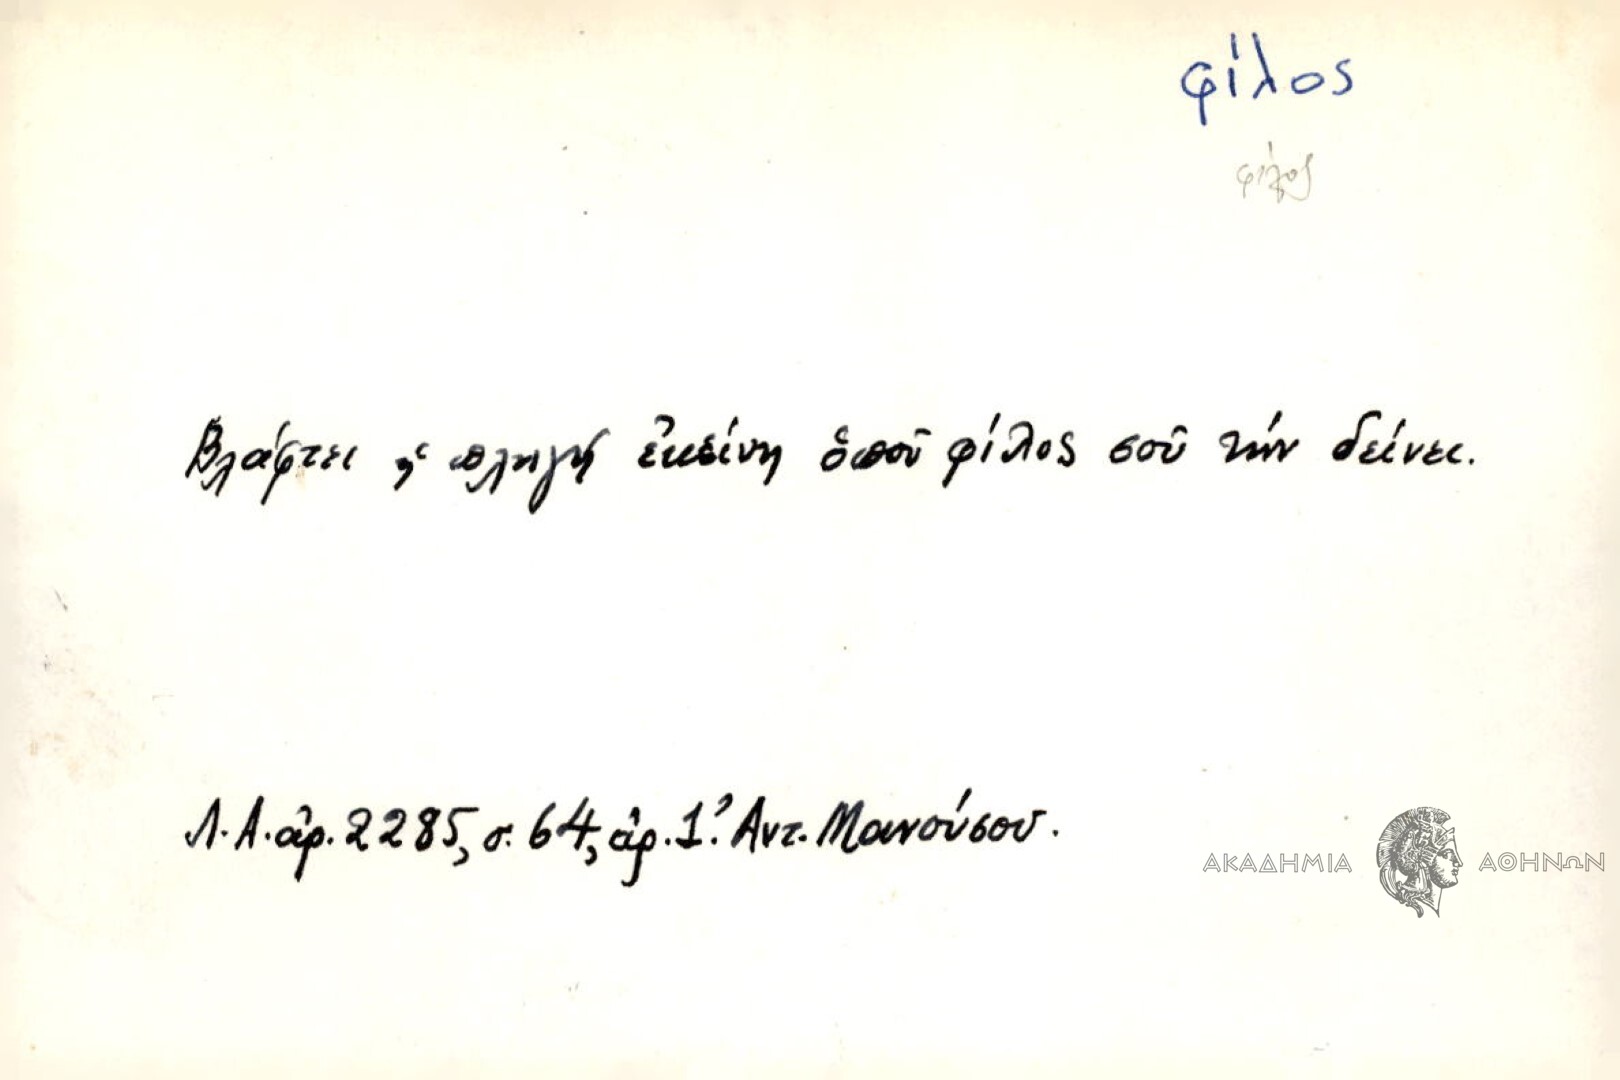 φίλος
φίλος
Βλάφτει ἡ πληγή ἐκείνη ὁποῦ φίλος σοῦ τήν δείνει.
Λ.Α. ἀρ. 2285, σ. 64, ἀρ. 1. Ἀντ. Μανούσου.
ΑΚΑΔΗΜΙΑ ΑΘΗΝΩΝ